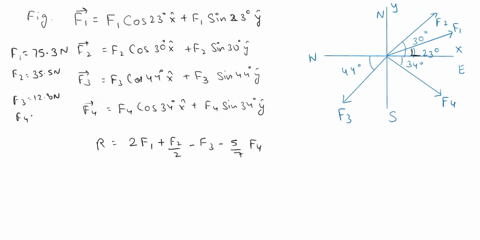 Fig. F₁⃗ = F₁ Cos23° x̂ + F₁ Sin23° ŷ
F₁ = 75.3N F₂⃗ = F₂ Cos30° x̂ + F₂ Sin30° ŷ
F₂ = 35.5N
F₃⃗ = F₃ Cos44° x̂ + F₃ Sin44° ŷ
F₃ = 12.8N
F₄⃗ = F₄ Cos34° x̂ + F₄ Sin34° ŷ
F₄
R = 2F₁ + F₂/2 - F₃ - 5/7 F₄
N y
F₂
F₁
30°
23° x
N 44° 34° E
F₃ F₄
S